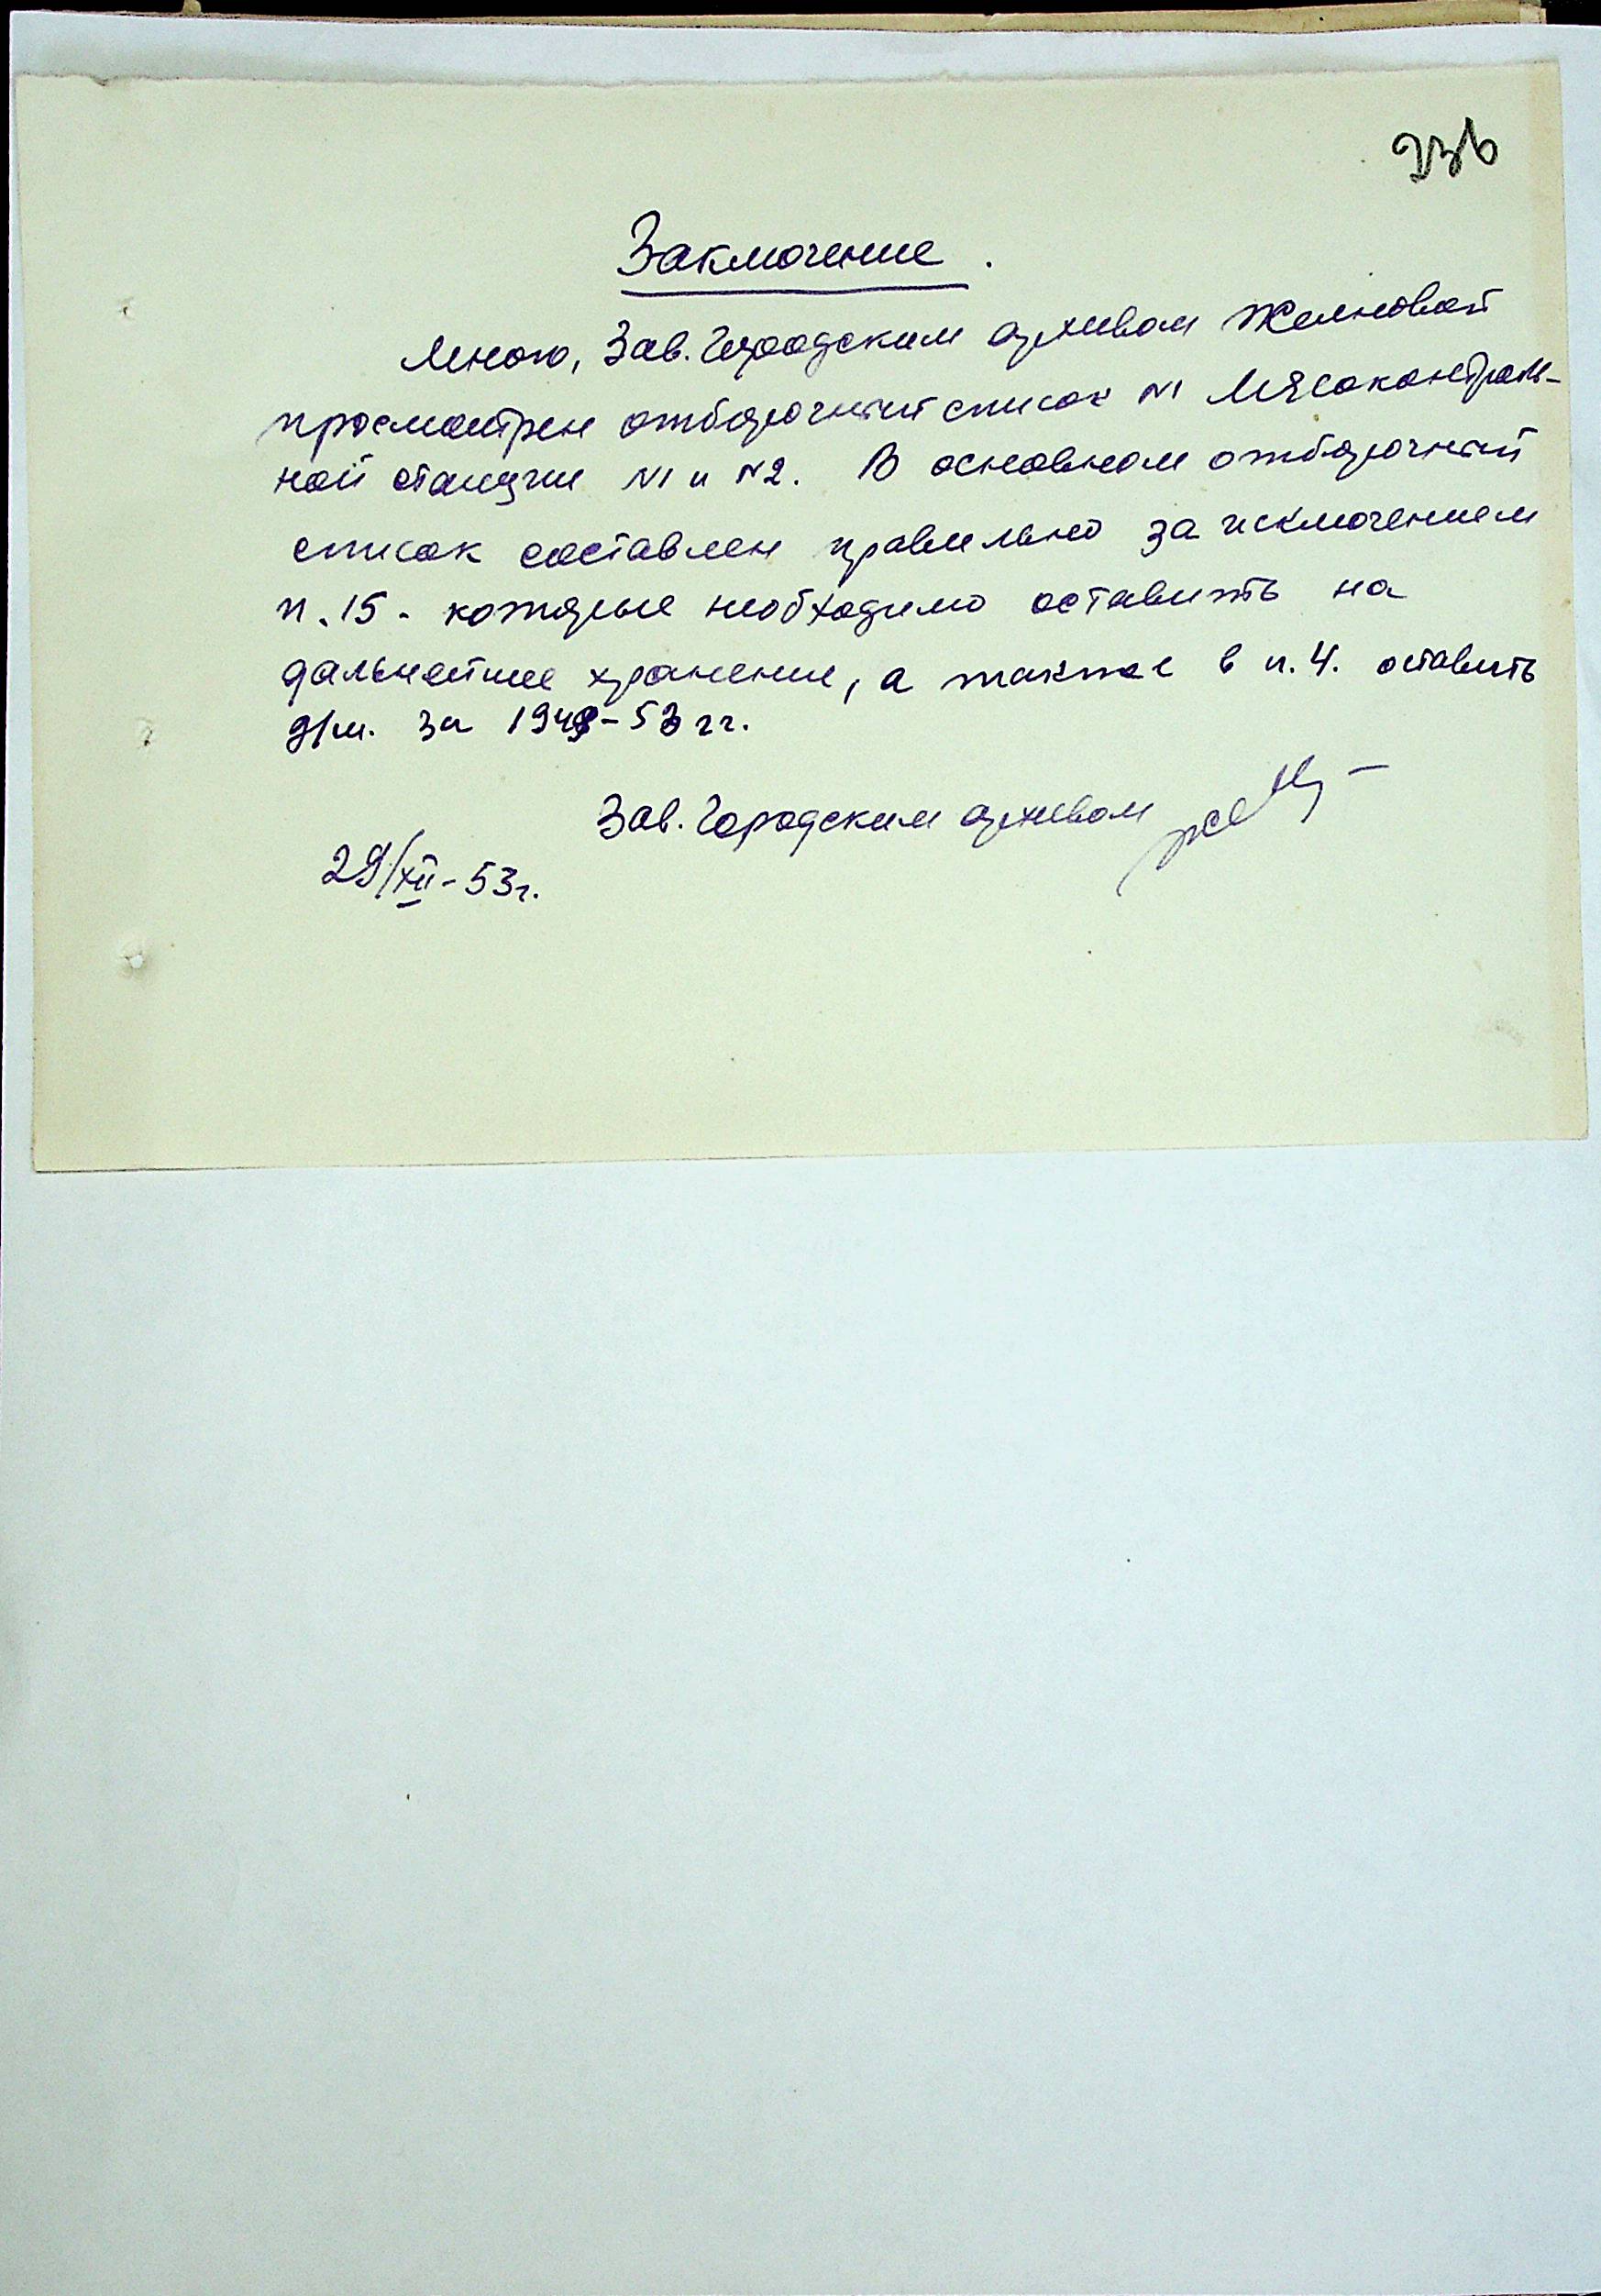 236
Заключение.
Мною, Зав. Городским архивом Желновой
просмотрен отборочный список №1 Мясоконтроль-
ной станции №1 и №2. В основном отборочный
список составлен правильно за исключением
п.15 - которые необходимо оставить на
дальнейшее хранение, а также в п.4. оставить
д/м. за 1949-53 гг.
Зав. Городским архивом
29/XII-53г.